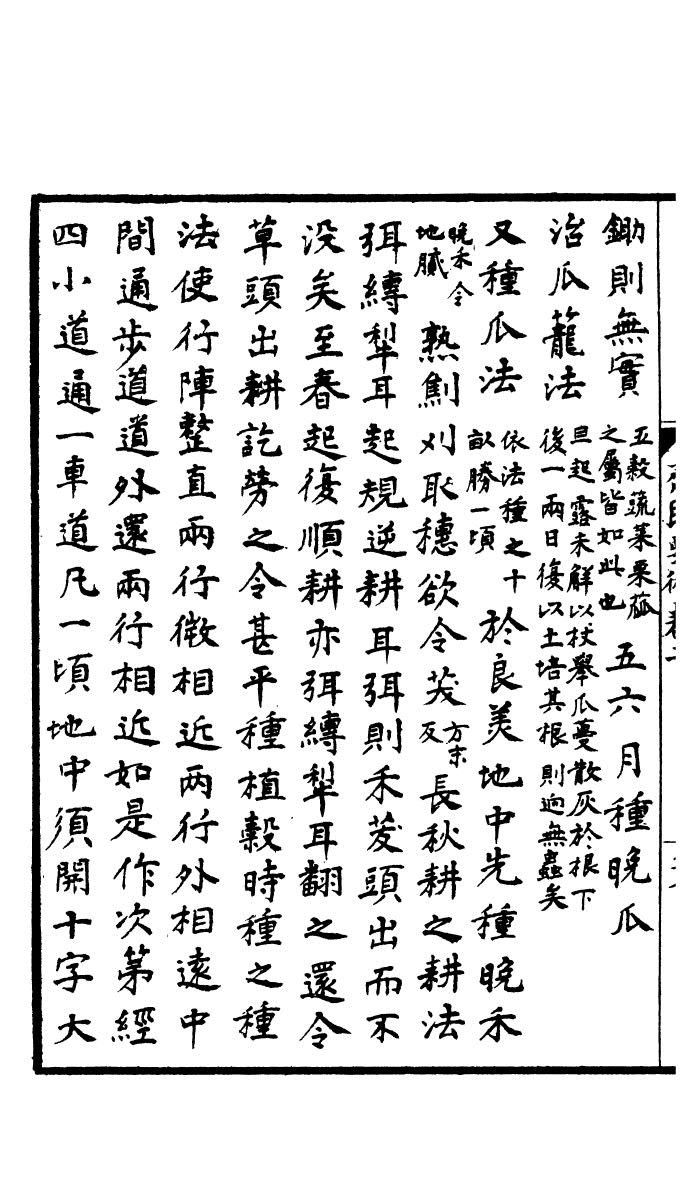 鋤則無實五穀蔬菜果蓏之屬皆如此也五六月種晚瓜
治瓜蘢法旦起露未解以杖舉瓜蔓散灰於根下後一兩日復以土培其根則迥無蟲矣
又種瓜法依法種之十畝勝一頃於良美地中先種晚禾
晚禾令地膩熟劁刈取穗欲令茇方末反長秋耕之耕法
弭縳犁耳起規逆耕耳弭則禾茇頭出而不
没矣至春起復順耕亦弭縳犁耳翻之還令
草頭出耕訖勞之令甚平種植穀時種之種
法使行陣整直兩行微相近兩行外相遠中
間通步道道外還兩行相近如是作次第經
四小道通一車道凡一頃地中須開十字大